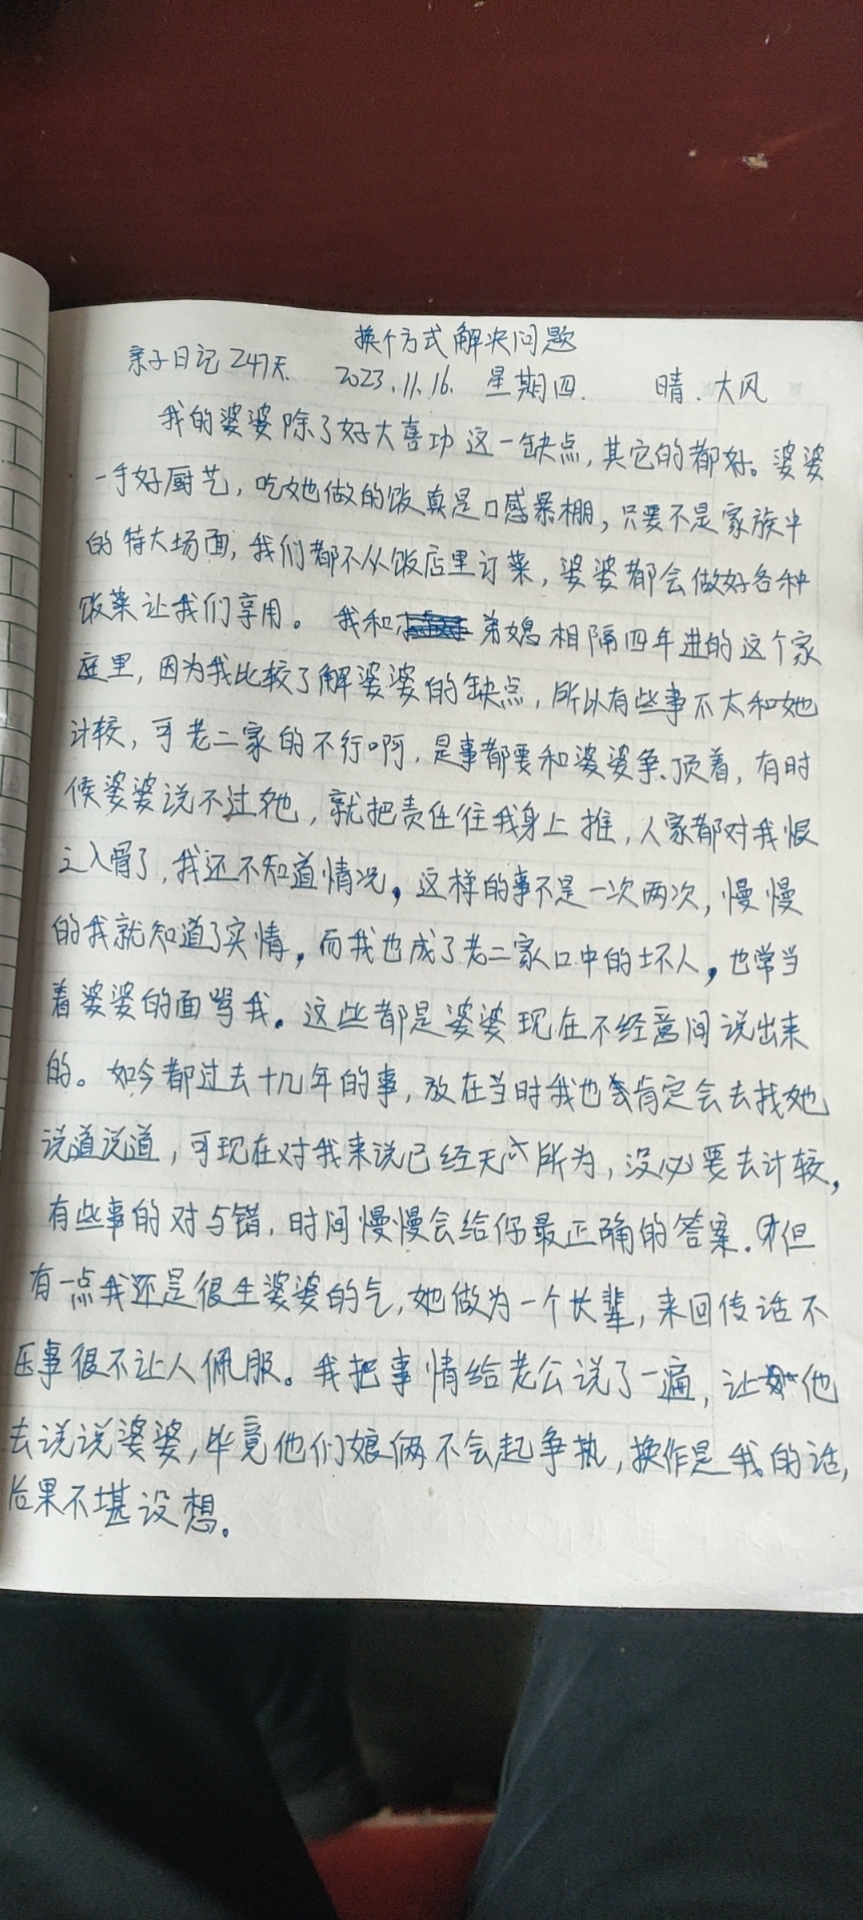 换个方式解决问题
亲子日记247天. 2023.11.16. 星期四. 晴.大风
我的婆婆除了好大喜功这一缺点,其它的都好。婆婆
一手好厨艺,吃她做的饭真是口感暴棚,只要不是家族中
的特大场面,我们都不从饭店里订菜,婆婆都会做好各种
饭菜让我们享用。我和弟媳相隔四年进的这个家
庭里,因为我比较了解婆婆的缺点,所以有些事不太和她
计较,可老二家的不行啊,是事都要和婆婆争.顶着,有时
候婆婆说不过她,就把责任往我身上推,人家都对我恨
之入骨了,我还不知道情况,这样的事不是一次两次,慢慢
的我就知道了实情,而我也成了老二家口中的坏人,也常当
着婆婆的面骂我。这些都是婆婆现在不经意间说出来
的。如今都过去十几年的事,放在当时我也肯定会去找她
说道说道,可现在对我来说已经无所为,没必要去计较,
有些事的对与错,时间慢慢会给你最正确的答案.但
有一点我还是很生婆婆的气,她做为一个长辈,来回传话不
压事很不让人佩服。我把事情给老公说了一遍,让他
去说说婆婆,毕竟他们娘俩不会起争执,换作是我的话,
后果不堪设想。